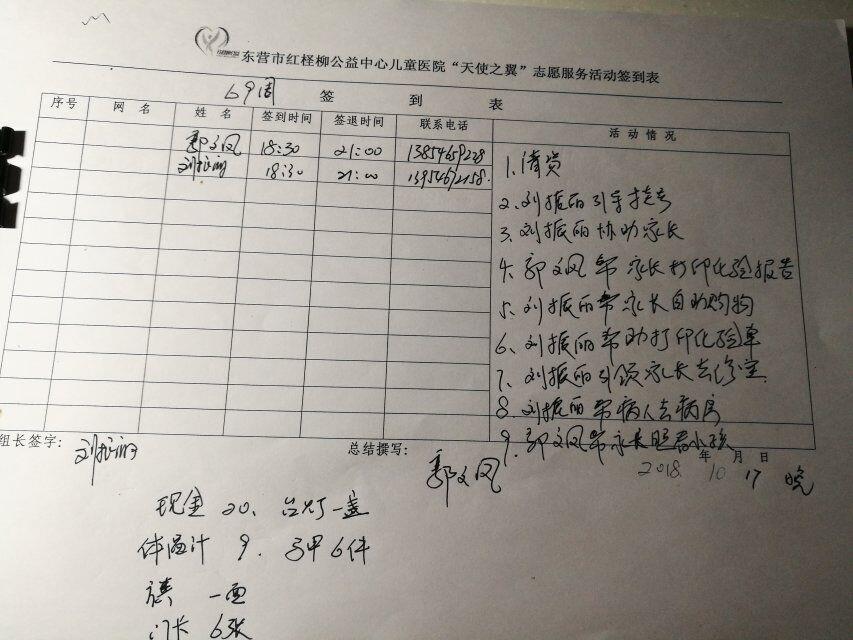 东营市红柽柳公益中心儿童医院“天使之翼”志愿服务活动签到表
69周
签 到 表
序号 网 名 姓 名 签到时间 签退时间 联系电话 活动情况
郭文凤 18:30 21:00
刘振丽 18:30 21:00
1、清资
2、刘振丽引导挂号
3、刘振丽协助家长
4、郭文凤帮家长打印化验报告
5、刘振丽帮家长自助购物
6、刘振丽帮助打印化验单
7、刘振丽引领家长去诊室
8、刘振丽帮病人去病房
9、郭文凤帮家长照看小孩
组长签字: 刘振丽 总结撰写: 郭文凤 年 月 日
2018 10 17 晚
现金 20、台灯一盏
体温计 9. 马甲6件
旗 一面
6张